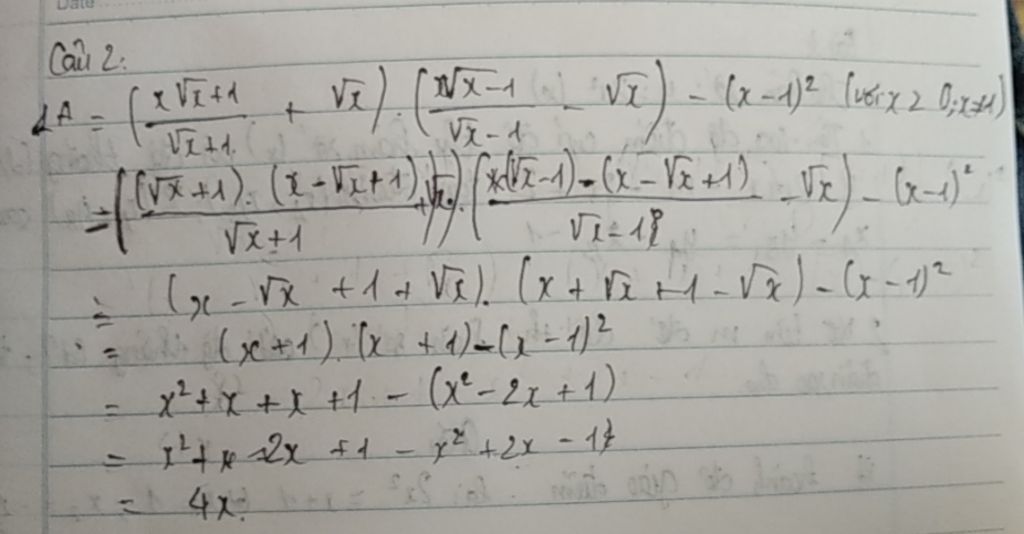 Câu 2:
A = (x√x+1 / √x+1 + √x) . (x√x-1 / √x-1 - √x) - (x-1)² (với x ≥ 0; x≠1)
= ((√x+1).(x-√x+1) / √x+1 + √x) . ((√x-1)-(x-√x+1) / √x-1 - √x) - (x-1)²
= (x - √x + 1 + √x). (x + √x + 1 - √x) - (x-1)²
= (x+1).(x+1)-(x-1)²
= x²+x+x+1 - (x²-2x+1)
= x²+ 2x +1 - x² +2x - 1
= 4x.